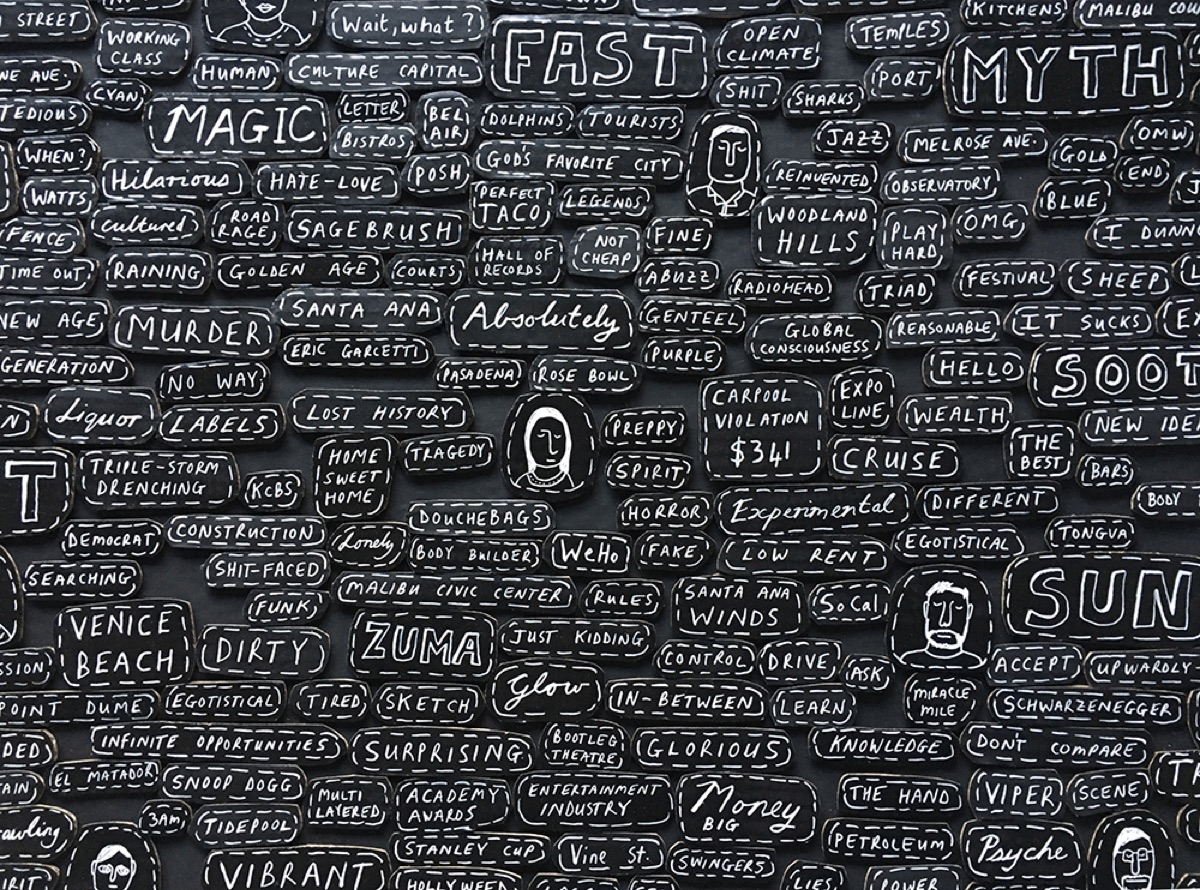 STREET
WORKING
CLASS
Wait, what?
FAST
OPEN
CLIMATE
TEMPLES
KITCHENS
MALIBU COU
NE AVE.
CYAN
HUMAN
CULTURE CAPITAL
SHIT
SHARKS
PORT
MYTH
TEDIOUS
MAGIC
LETTER
BISTROS
BEL
AIR
DOLPHINS
TOURISTS
JAZZ
MELROSE AVE.
OMW
WHEN?
GOD'S FAVORITE CITY
GOLD
END
WATTS
Hilarious
HATE-LOVE
POSH
PERFECT
TACO
LEGENDS
REINVENTED
OBSERVATORY
BLUE
FENCE
Cultured
ROAD
RAGE
SAGEBRUSH
HALL OF
RECORDS
NOT
CHEAP
FINE
WOODLAND
HILLS
PLAY
HARD
OMG
I DUNN
TIME OUT
RAINING
GOLDEN AGE
COURTS
ABUZZ
RADIOHEAD
TRIAD
FESTIVAL
SHEEP
NEW AGE
MURDER
SANTA ANA
Absolutely
GENTEEL
GLOBAL
CONSCIOUSNESS
REASONABLE
IT SUCKS
GENERATION
ERIC GARCETTI
PURPLE
HELLO
SOOT
NO WAY
PASADENA
ROSE BOWL
CARPOOL
VIOLATION
$341
EXPO
LINE
WEALTH
NEW IDE
N
Liquor
LABELS
LOST HISTORY
PREPPY
THE
BEST
T
TRIPLE-STORM
DRENCHING
KCBS
HOME
SWEET
HOME
TRAGEDY
SPIRIT
CRUISE
BARS
DEMOCRAT
CONSTRUCTION
DOUCHEBAGS
HORROR
Experimental
DIFFERENT
BODY
SEARCHING
SHIT-FACED
Lonely
BODY BUILDER
WeHo
FAKE
LOW RENT
EGOTISTICAL
TONGVA
FUNK
MALIBU CIVIC CENTER
RULES
SANTA ANA
WINDS
SoCal
SUN
VENICE
BEACH
DIRTY
ZUMA
JUST KIDDING
CONTROL
DRIVE
ASK
ACCEPT
UPWARDLY
SSION
POINT DUME
EGOTISTICAL
TIRED
SKETCH
Glow
IN-BETWEEN
LEARN
MIRACLE
MILE
SCHWARZENEGGER
DED
INFINITE OPPORTUNITIES
SURPRISING
BOOTLEG
THEATRE
GLORIOUS
KNOWLEDGE
DON'T COMPARE
AIN
EL MATADOR
SNOOP DOGG
MULTI
LAYERED
ACADEMY
AWARDS
ENTERTAINMENT
INDUSTRY
Money
BIG
THE HAND
VIPER
SCENE
rawling
3AM
TIDEPOOL
STANLEY CUP
Vine St.
SWINGERS
PETROLEUM
Psyche
VIBRANT
HOLLYWEEN
LIES
POWER